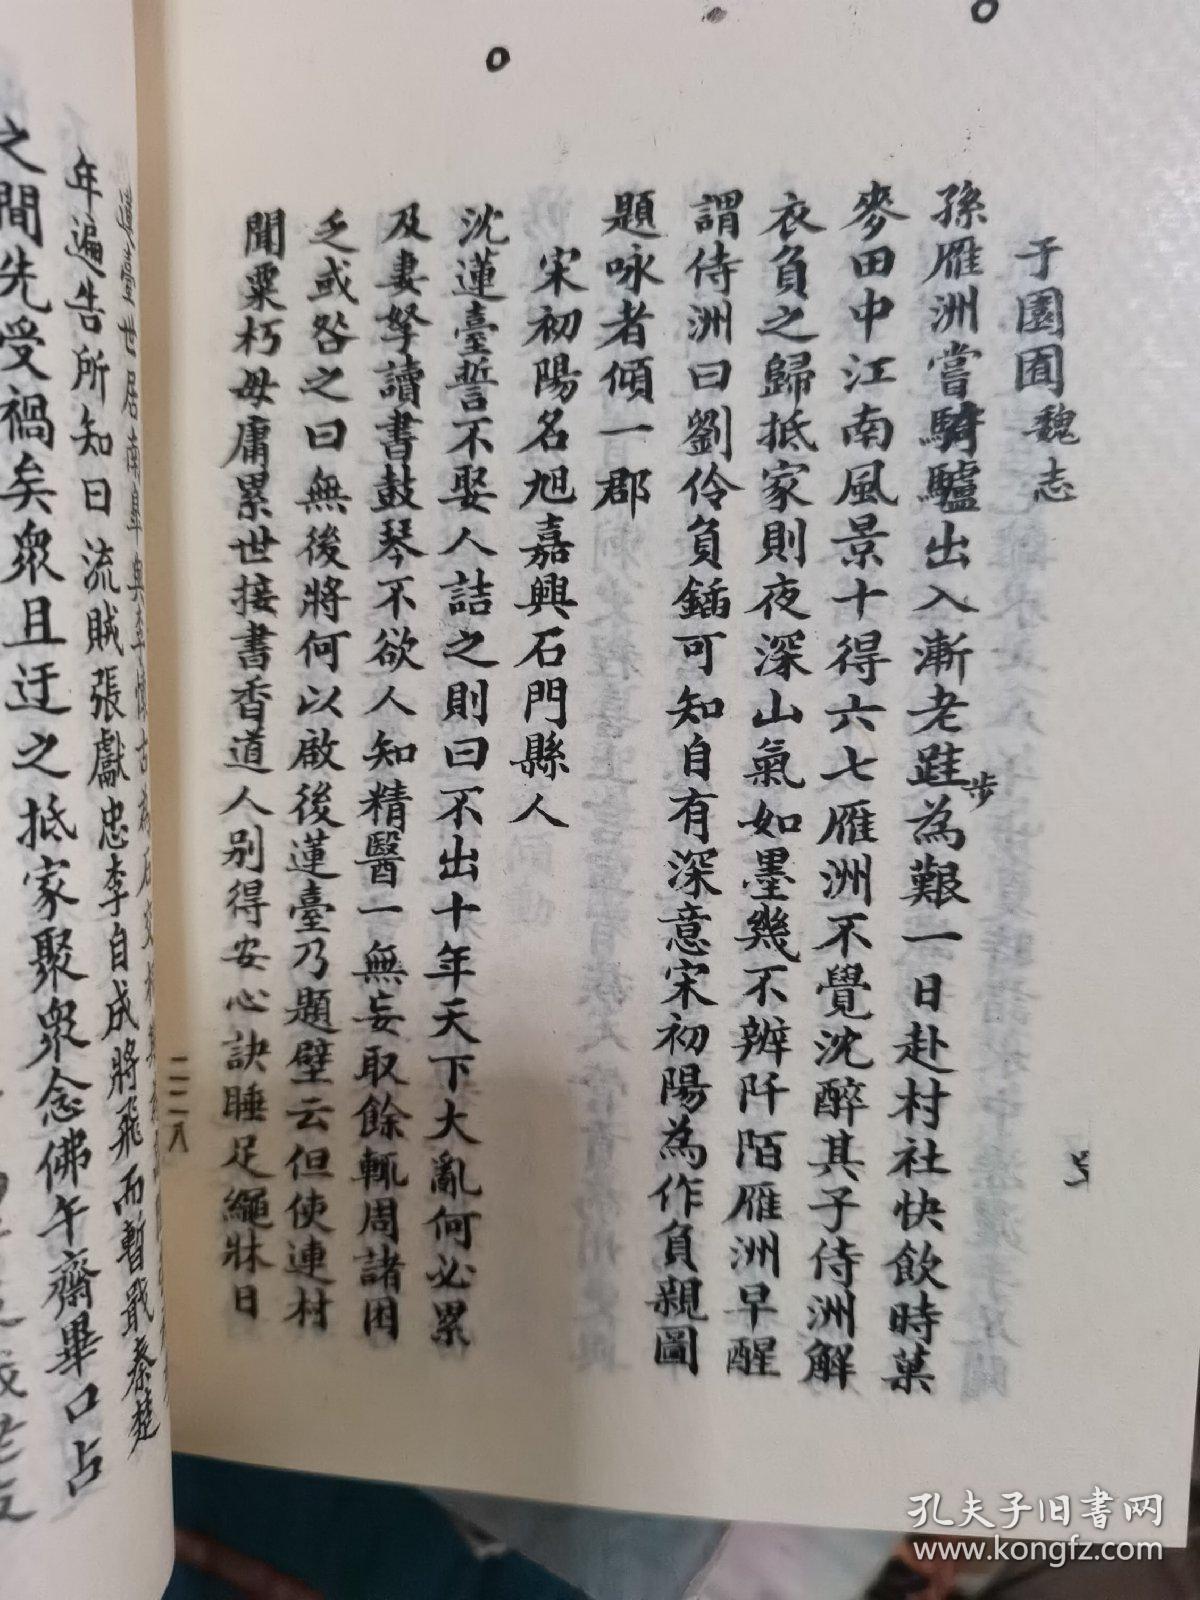 于園囿魏志
孫雁洲嘗騎驢出入漸老跬步為艱一日赴村社快飲時菓
麥田中江南風景十得六七雁洲不覺沈醉其子侍洲解
衣負之歸抵家則夜深山氣如墨幾不辨阡陌雁洲早醒
謂侍洲曰劉伶負鍤可知自有深意宋初陽為作負親圖
題咏者傾一郡
宋初陽名旭嘉興石門縣人
沈蓮臺誓不娶人詰之則曰不出十年天下大亂何必累
及妻孥讀書鼓琴不欲人知精醫一無妄取餘輒周諸困
乏或咎之曰無後將何以啟後蓮臺乃題壁云但使連村
聞粟朽毋庸累世接書香道人别得安心訣睡足繩牀日
二二八
蓮臺世居南阜與李
年遍告所知曰流賊張獻忠李自成將飛而暫戢秦楚
之間先受禍矣衆且迂之抵家聚衆念佛午齋畢口占
孔夫子旧书网
www.kongfz.com